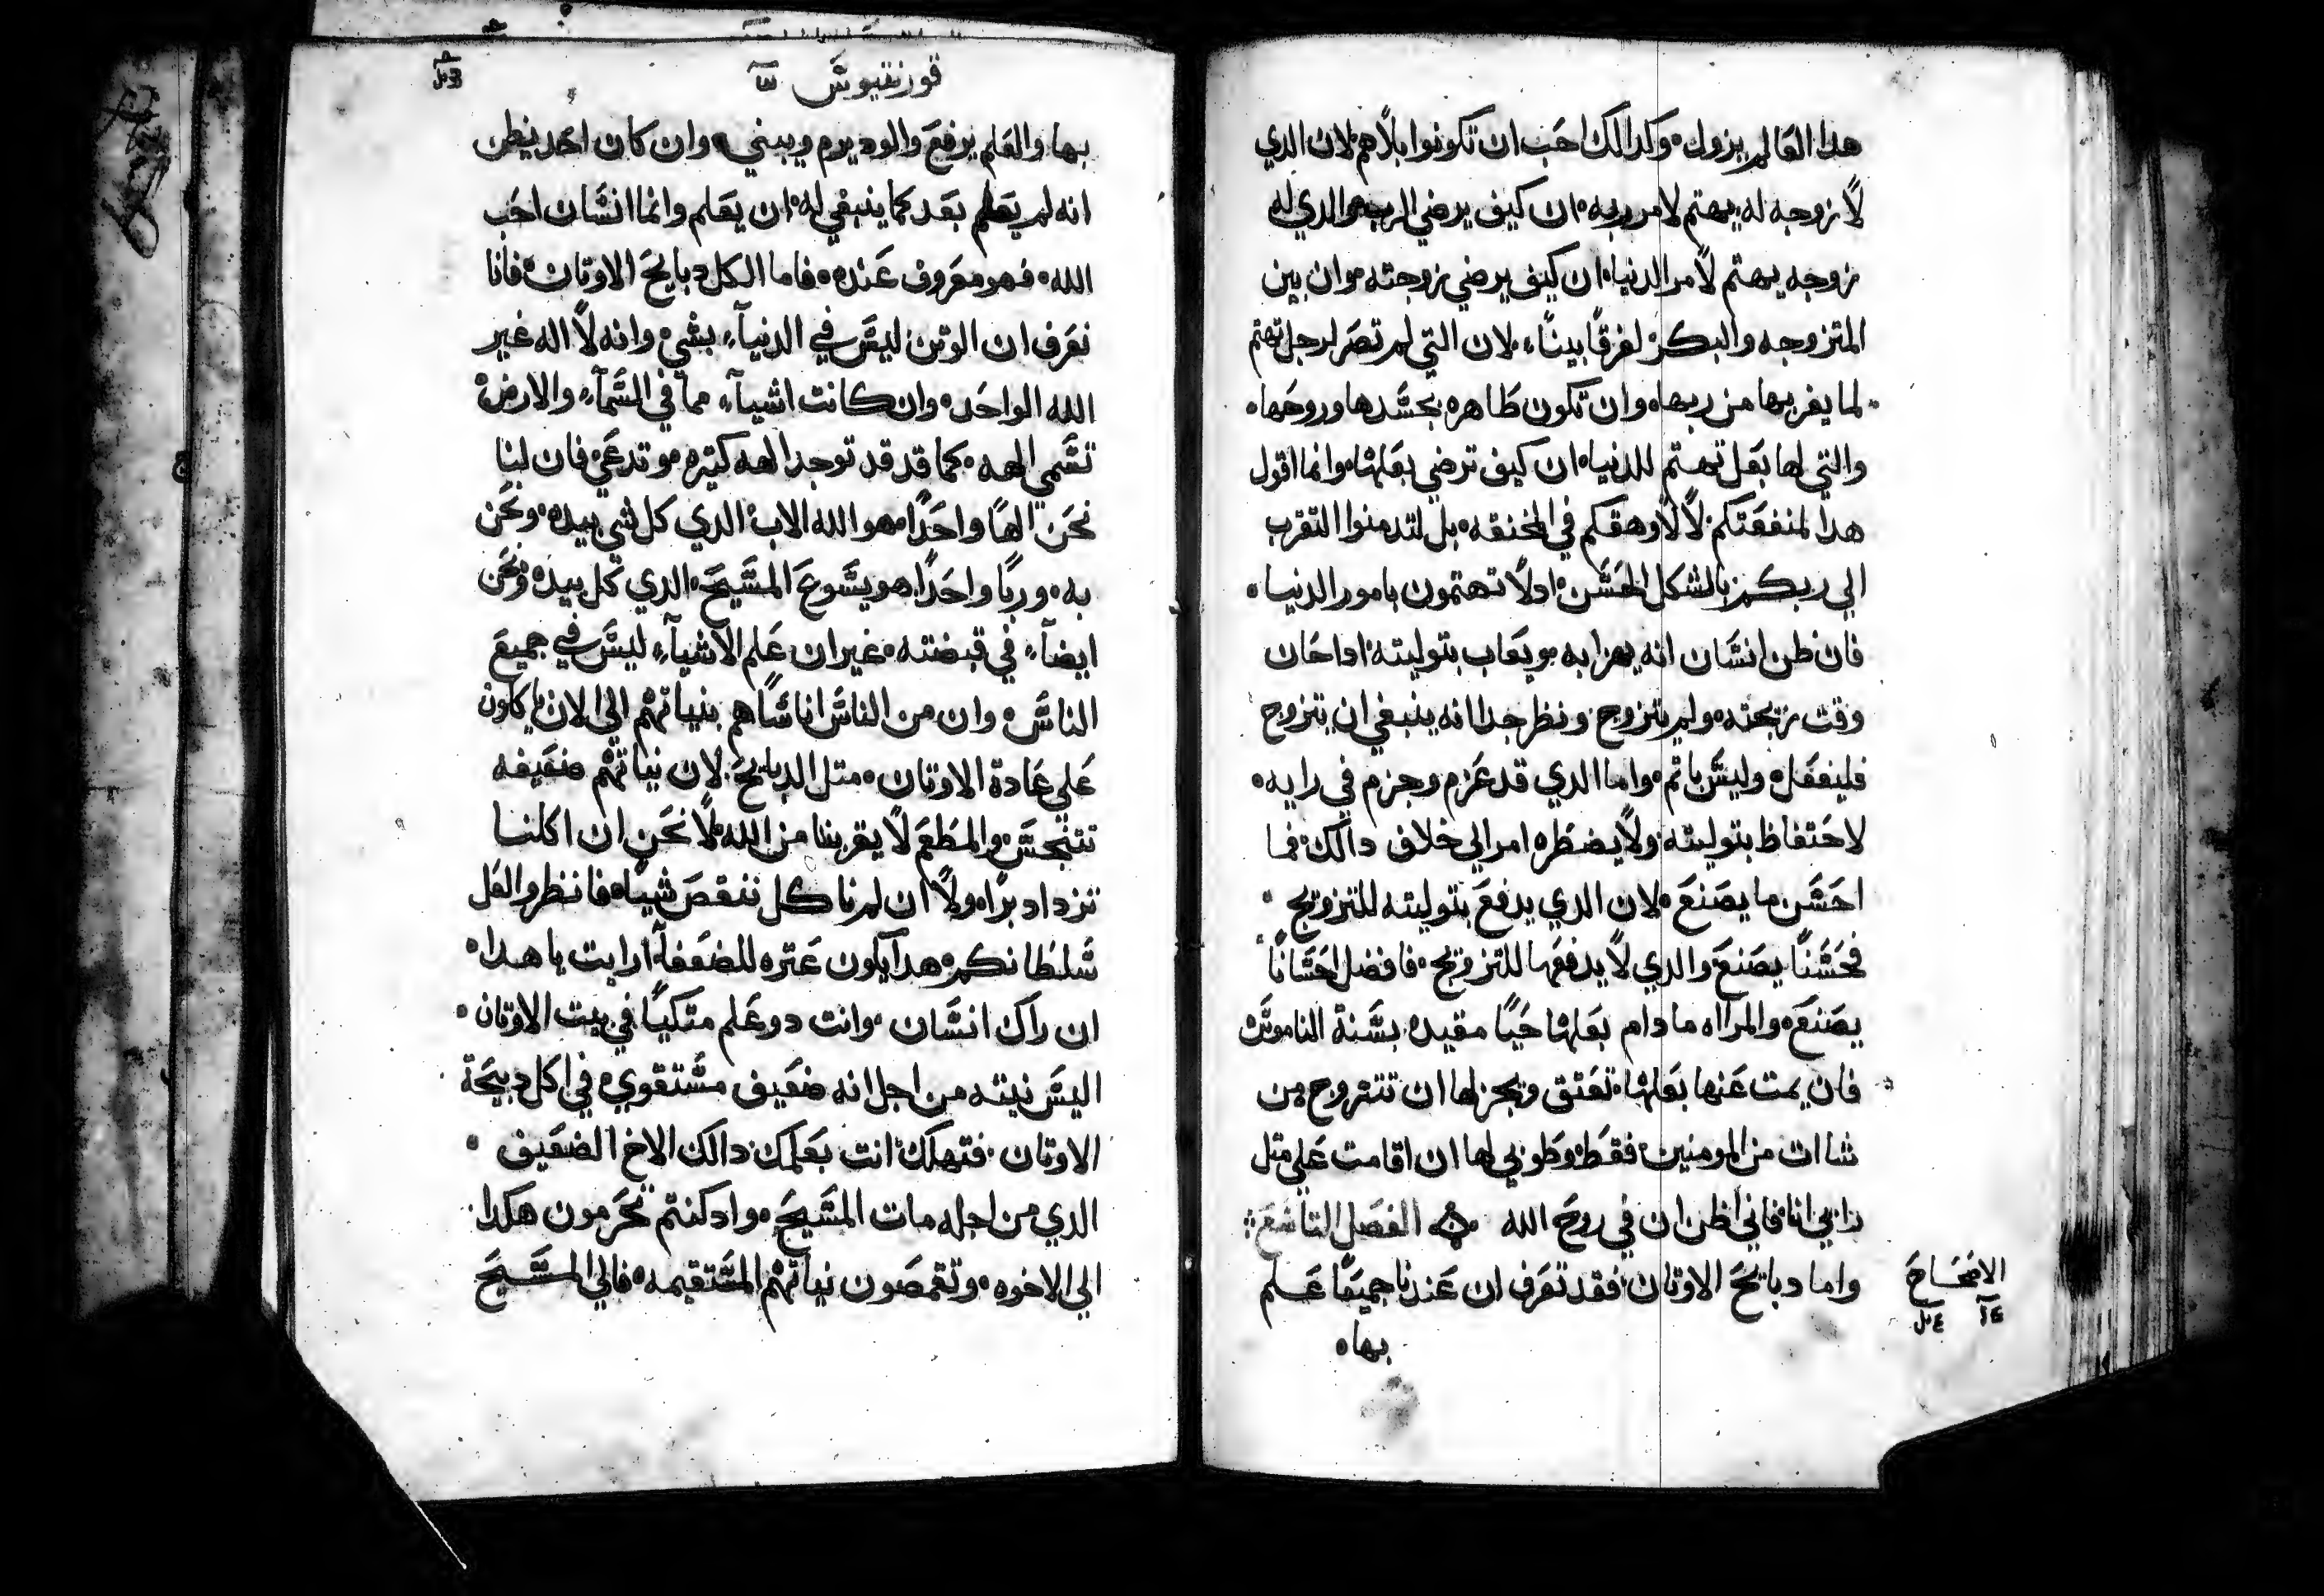 هدا العَالم يزول. وكدالك احَب ان تكونوا بلاهم. لان الدي
لا زوجه له يهتم لامر ربه. ان كيف يرضي الرب. والدي له
زوجه يهتم لامر الدنيا. ان كيف يرضي زوجته. وان بين
المتزوجه والبكر. لفرقًا بينًا، لان التي لم تصَر لرجل تهتم
لما يقربها من ربها. وان تكون طَاهره بجسَّدها وروحَها.
والتي لها بعَل تهتم للدنيا. ان كيف ترضي بعَلها. وانما اقول
هدا لمنفعَتكم. لا لاوهقكم في المخنقه. بل لتدمنوا التقرب
الي ربكم بالشكل الحَسَّن. ادلا تهتمون بامور الدنيا.
فان ظن انسَّان انه يهزا به ويعَاب بتوليته. ادا حَان
وقت زيجته. ولم يتزوج ونظر جدا انه ينبغي ان يتزوج
فليفعَل. وليسَّ ياتم. واما الدي قد عَزم وجزم في رايه.
لاحَتفاظ بتوليته. ولا يضطَره امر الي خلاف دالك. فما
احَسَّن ما يصَنعَ. لان الدي يدفعَ بتوليته للتزويج.
فحَسَّنًا يصَنعَ والدي لا يدفعَها للتزويج. فافضل احَسَّانًا
يصَنعَ. والمراه ما دام بعَلها حَيًا مقيده بسَّنة الناموسَّ
فان يمت عَنها بعَلها. تعَتق ويجز لها ان تتزوج من
شاات من المومنين فقطَ. وطَوبي لها ان اقامت عَلي متل
رايي انا. فاني اظن ان في روحَ الله. الفصَل التاسَّعَ
واما دبايحَ الاوتان. فقد تعَرف ان عَندنا جميعًا عَلم
بها.
الاصحَاحَ
قورنتيوسَّ
بها والعَلم يرفعَ والود يرم ويبني. وان كان احَد يظن
انه لم يعَلم بعَد كما ينبغي له. ان يعَلم وانما انسَّان احَب
الله. فهو معَروف عَنده. فاما اكل دبايحَ الاوتان. فانا
نعَرف ان الوتن ليسَّ في الدنيآ، بشي. وانه لا اله غير
الله الواحَد. وان كانت اشيآ، مما في السَّمآ، والارض
تسَّمي الهه. كما قد قد توجد الهه كتيره. وتدعَي فان لنا
نحَن الهًا واحَدًا. هو الله الاب الدي كل شي بيده. ونحَن
به. وربًا واحَدًا. هو يسَّوعَ المسَّيحَ. الدي كل بيده. ونحَن
ايضآ، في قبضته. غير ان عَلم الاشيآ، ليسَّ في جميعَ
الناسَّ. وان من الناسَّ اناسًَّا هم بنياتهم الي الان ياكلون
عَلي عَادة الاوتان. متل الدبايحَ. لان نياتهم ضعَيفه
تتنجسَّ والمطَعَم لا يقربنا من الله. لا نحَن ان اكلنا
نزداد برًا. ولا ان لم ناكل ننقصَ شيًا. فانظروا لعَل
سَّلطَانكم. هدا يكون عَتره للضعَفآ ارايت يا هدا.
ان راك انسَّان. وانت دو عَلم متكيًا في بيت الاوتان.
اليسَّ نيته من اجل انه ضعَيف مسَّتقويه في اكل دبيحَة
الاوتان. فتهلك انت بعَلمك دالك الاخ الضعَيف.
الدي من اجله مات المسَّيحَ. واد كنتم تجَرمون هكدا.
الي الاخوه. وتقمصَون نياتهم المسَّتقيمه. فالي المسَّيحَ